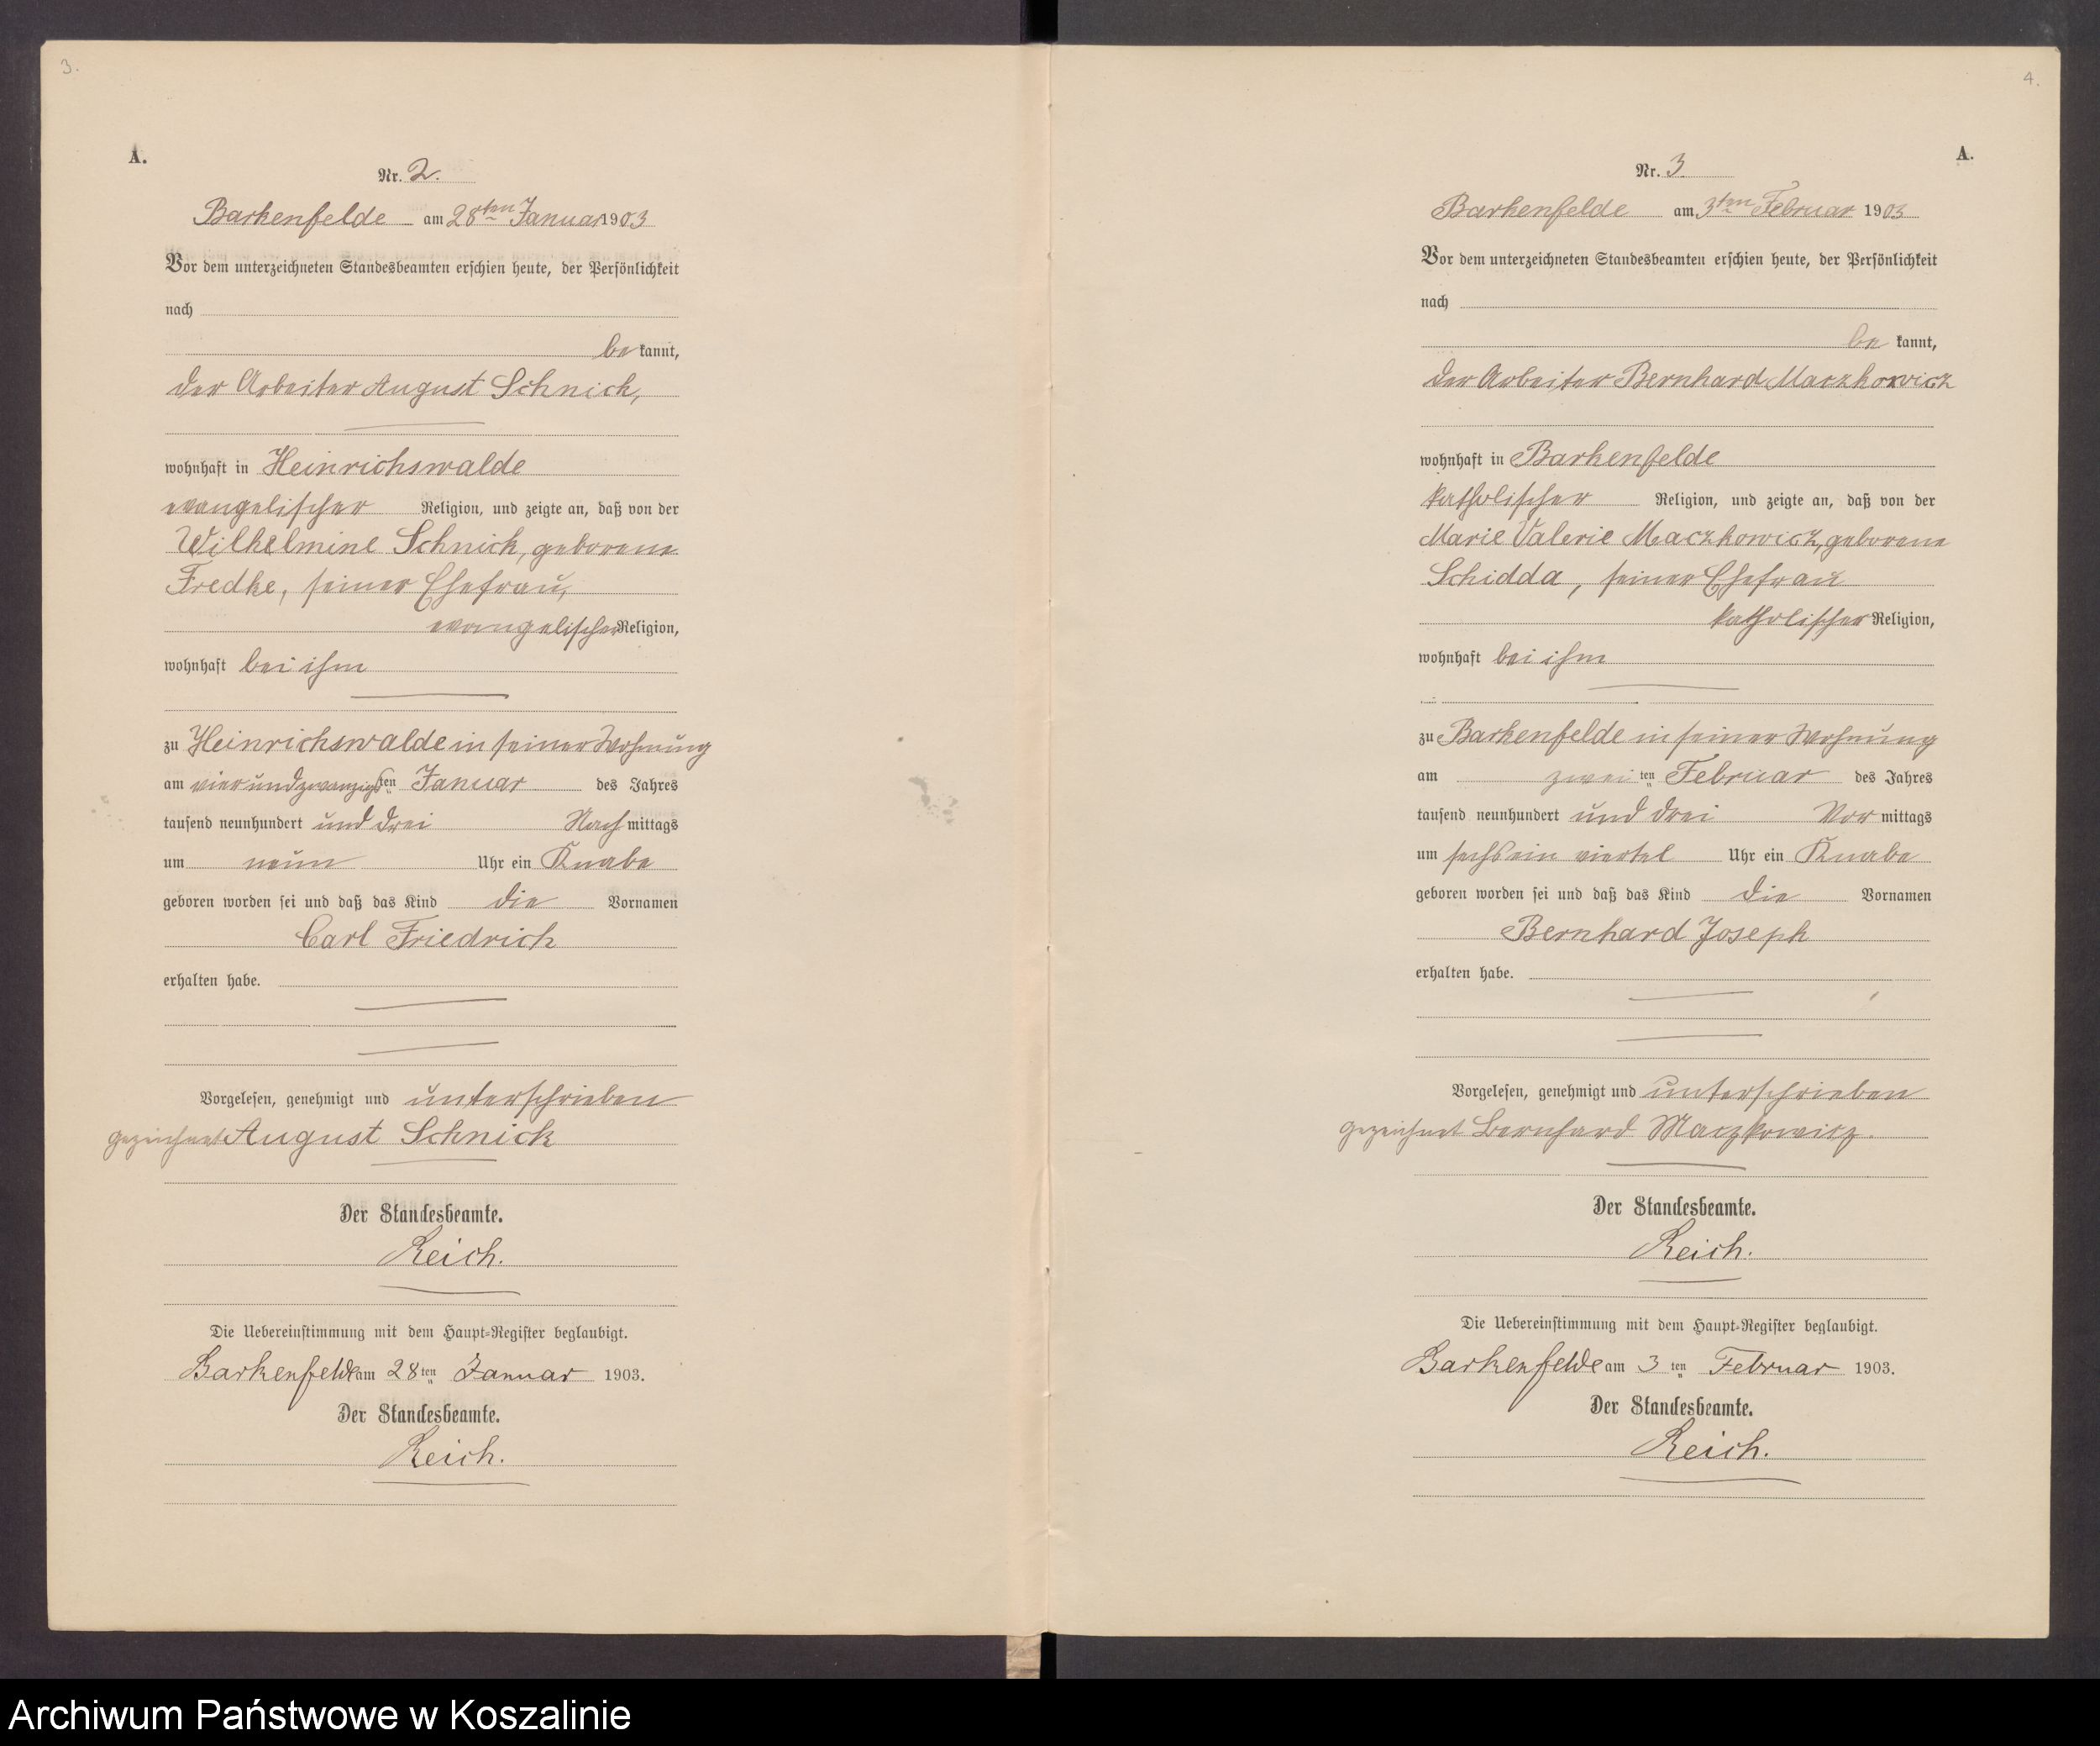 3.
A.
Nr. 2.
Barkenfelde am 28ten Januar 1903
Vor dem unterzeichneten Standesbeamten erschien heute, der Persönlichkeit
nach
be kannt,
der Arbeiter August Schnick,
wohnhaft in Heinrichswalde
evangelischer Religion, und zeigte an, daß von der
Wilhelmine Schnick, geborene
Fredke, seiner Ehefrau,
evangelischer Religion,
wohnhaft bei ihm
zu Heinrichswalde in seiner Wohnung
am vierundzwanzigsten Januar des Jahres
tausend neunhundert und drei Nach mittags
um neun Uhr ein Knabe
geboren worden sei und daß das Kind die Vornamen
Carl Friedrich
erhalten habe.
Vorgelesen, genehmigt und unterschrieben
gezeichnet August Schnick
Der Standesbeamte.
Reich.
Die Uebereinstimmung mit dem Haupt-Register beglaubigt.
Barkenfelde am 28ten Januar 1903.
Der Standesbeamte.
Reich.
4.
A.
Nr. 3
Barkenfelde am 3ten Februar 1903
Vor dem unterzeichneten Standesbeamten erschien heute, der Persönlichkeit
nach
be kannt,
der Arbeiter Bernhard Maczkowicz
wohnhaft in Barkenfelde
katholischer Religion, und zeigte an, daß von der
Marie Valerie Maczkowicz, geborene
Schidda, seiner Ehefrau
katholischer Religion,
wohnhaft bei ihm
zu Barkenfelde in seiner Wohnung
am zwei ten Februar des Jahres
tausend neunhundert und drei Vor mittags
um sechs ein viertel Uhr ein Knabe
geboren worden sei und daß das Kind die Vornamen
Bernhard Joseph
erhalten habe.
Vorgelesen, genehmigt und unterschrieben
gezeichnet Bernhard Maczkowicz.
Der Standesbeamte.
Reich.
Die Uebereinstimmung mit dem Haupt-Register beglaubigt.
Barkenfelde am 3ten Februar 1903.
Der Standesbeamte.
Reich.
Archiwum Państwowe w Koszalinie